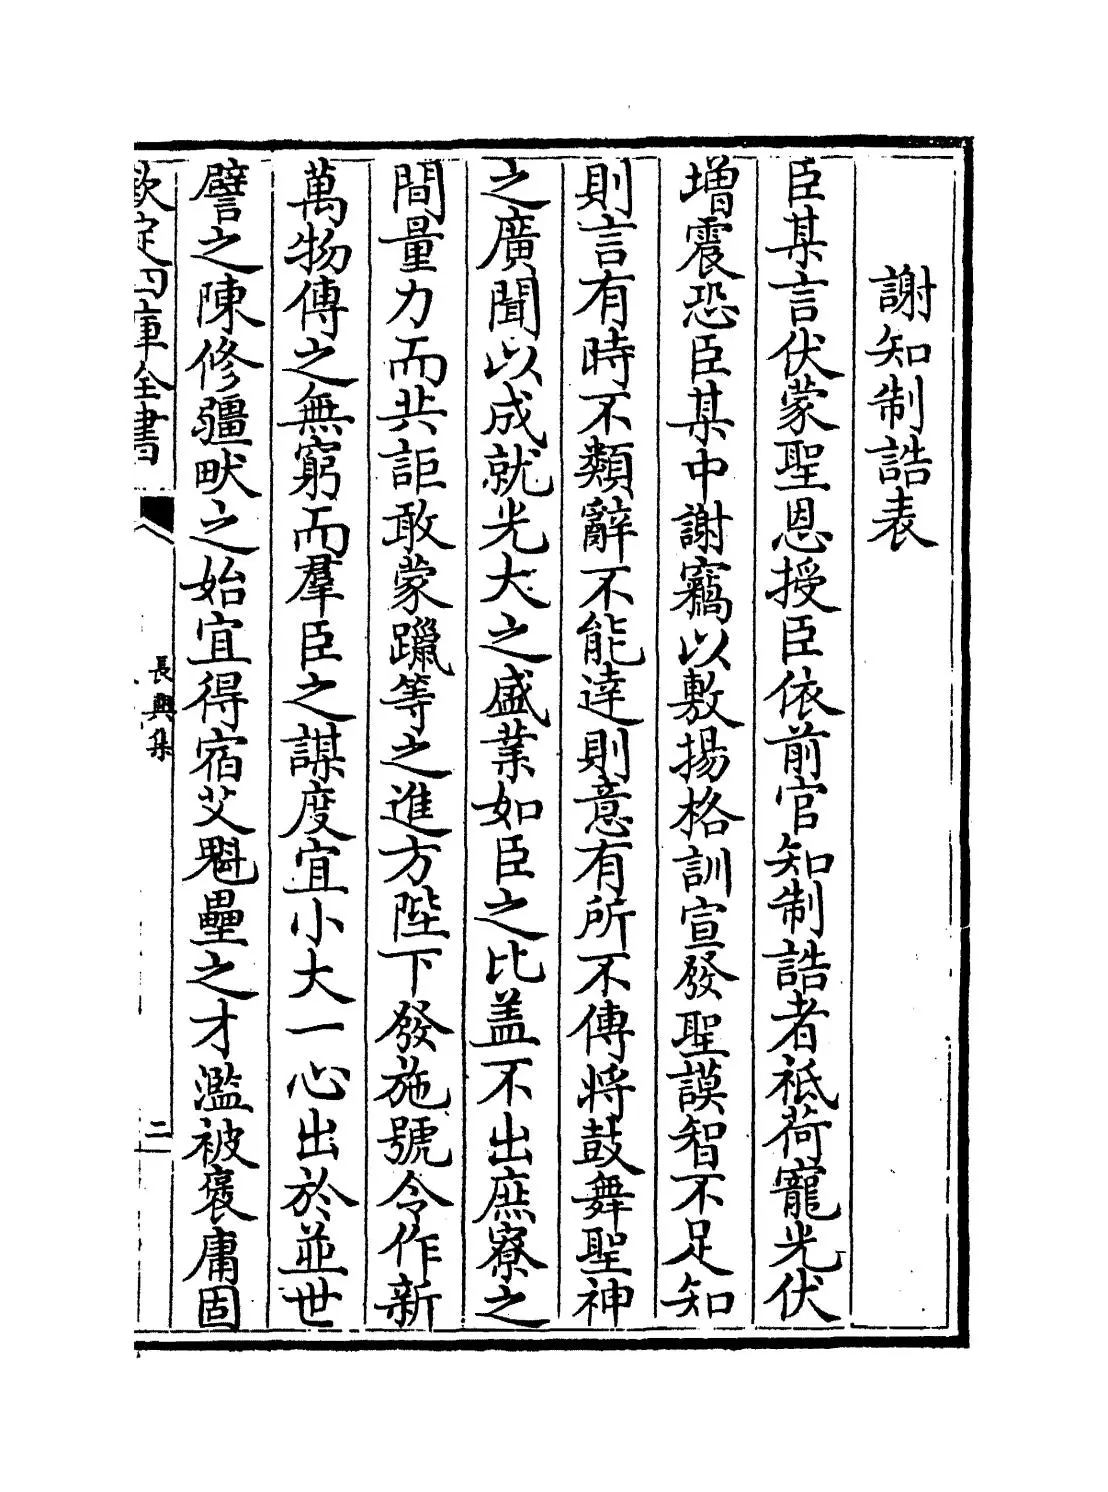 謝知制誥表
臣某言伏蒙聖恩授臣依前官知制誥者祗荷寵光伏
增震恐臣某中謝竊以敷揚格訓宣發聖謨智不足知
則言有時不類辭不能達則意有所不傳將鼓舞聖神
之廣聞以成就光大之盛業如臣之比盖不出庶寮之
間量力而共詎敢蒙躐等之進方陛下發施號令作新
萬物傳之無窮而羣臣之謀度宜小大一心出於並世
譬之陳修疆畎之始宜得宿艾魁壘之才濫被褒庸固
欽定四庫全書
長興集
二